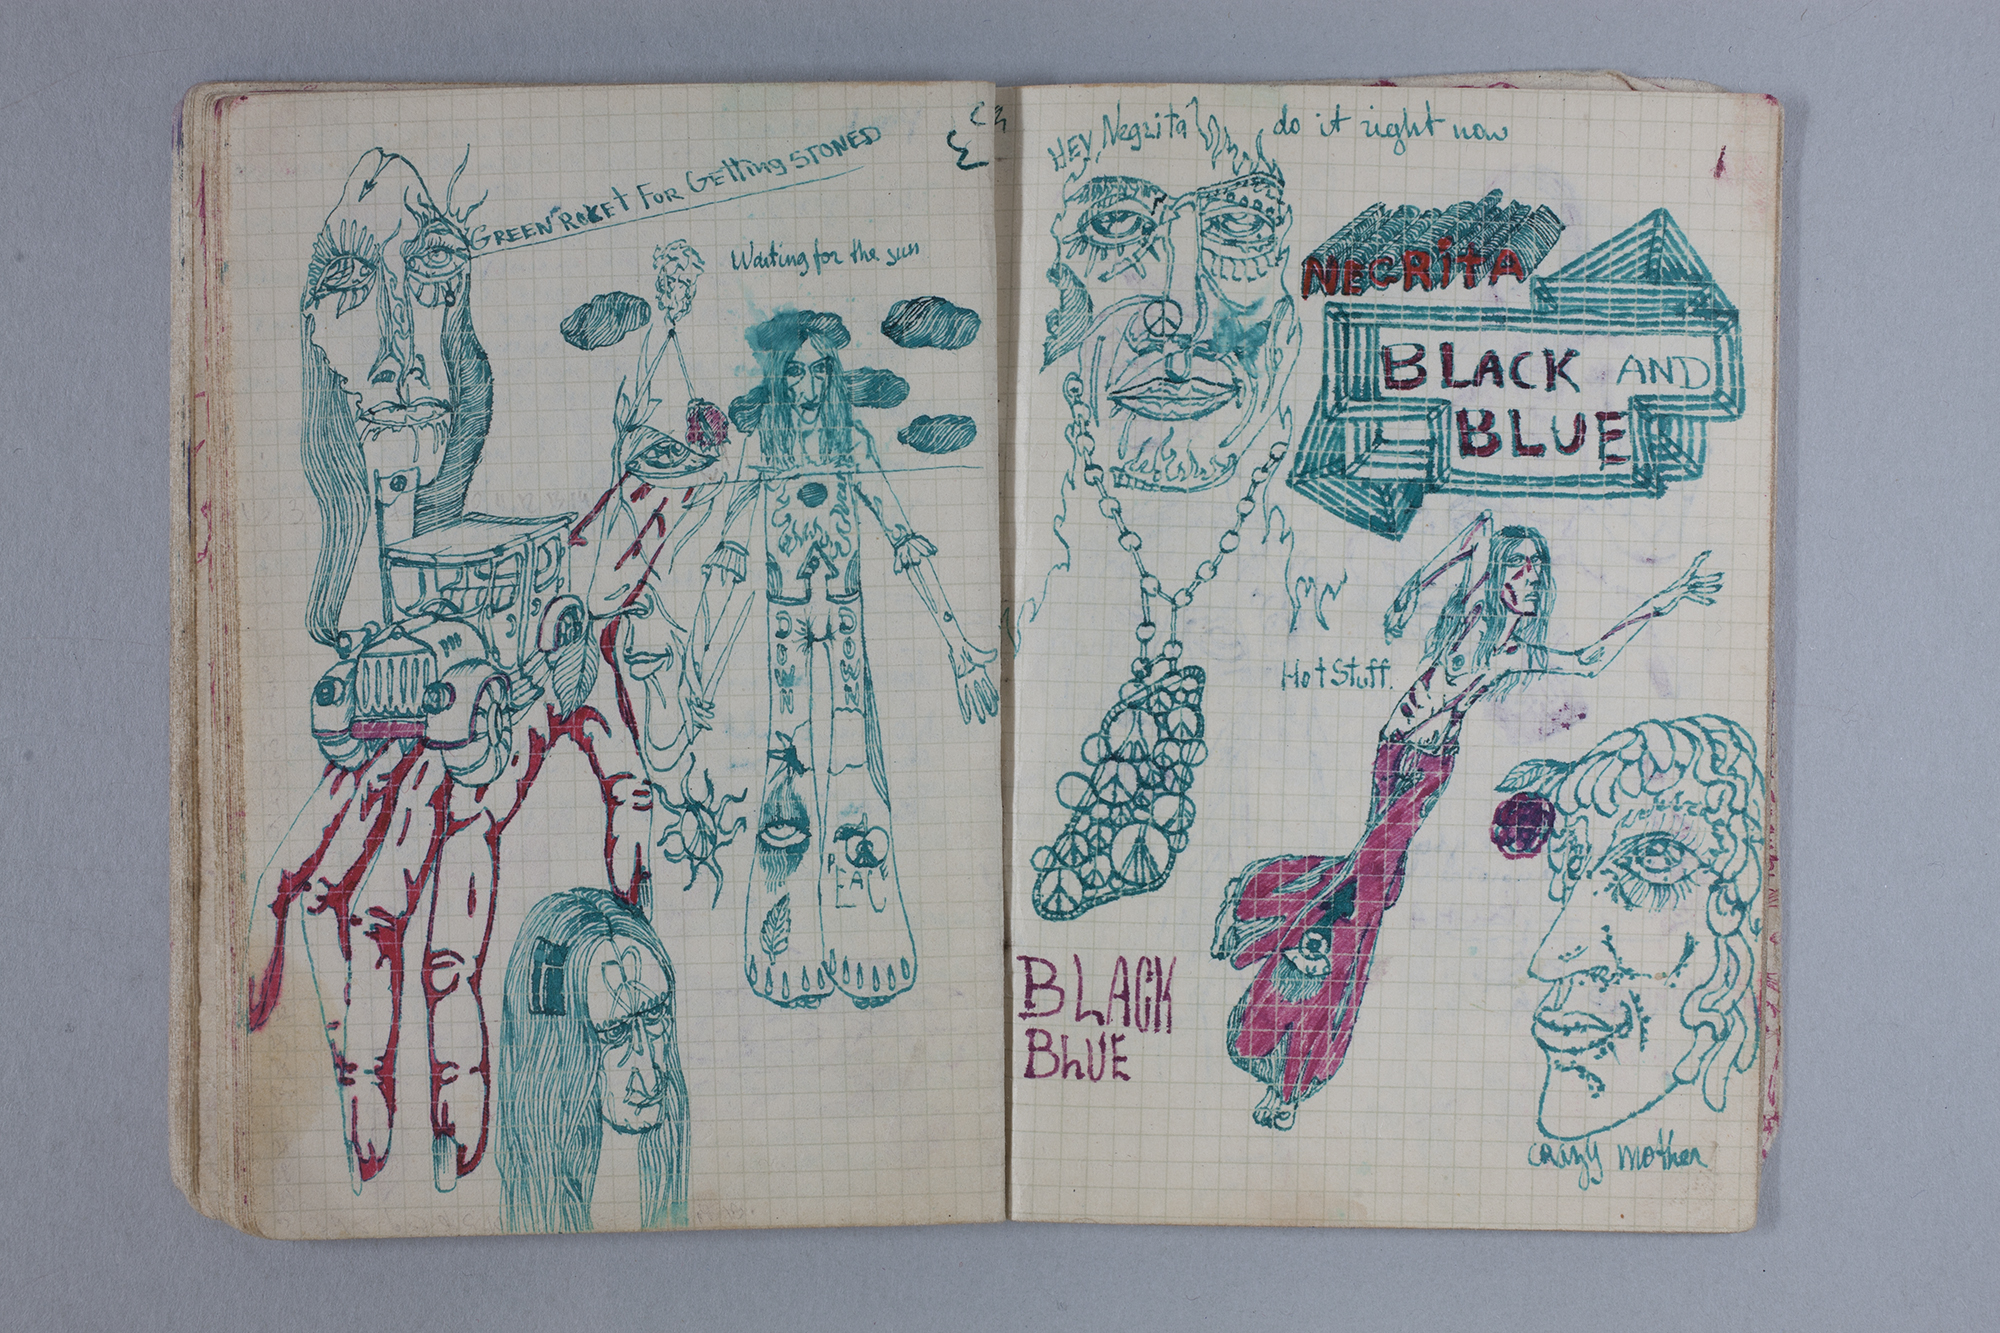 GREEN ROKET FOR GEtting STONED
Waiting for the sun
PEACE
HEY Negrita
do it right now
NEGRITA
BLACK AND
BLUE
Hot Stuff.
BLACK
BhUE
crazy mother